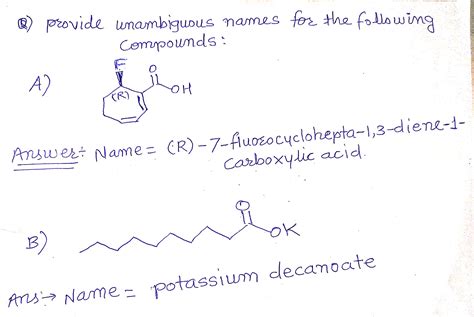 Q) provide unambiguous names for the following
compounds:
A)
F
O
OH
(R)
Answer: Name = (R)-7-fluorocyclohepta-1,3-diene-1-
carboxylic acid.
B)
O
OK
Ans:→ Name = potassium decanoate